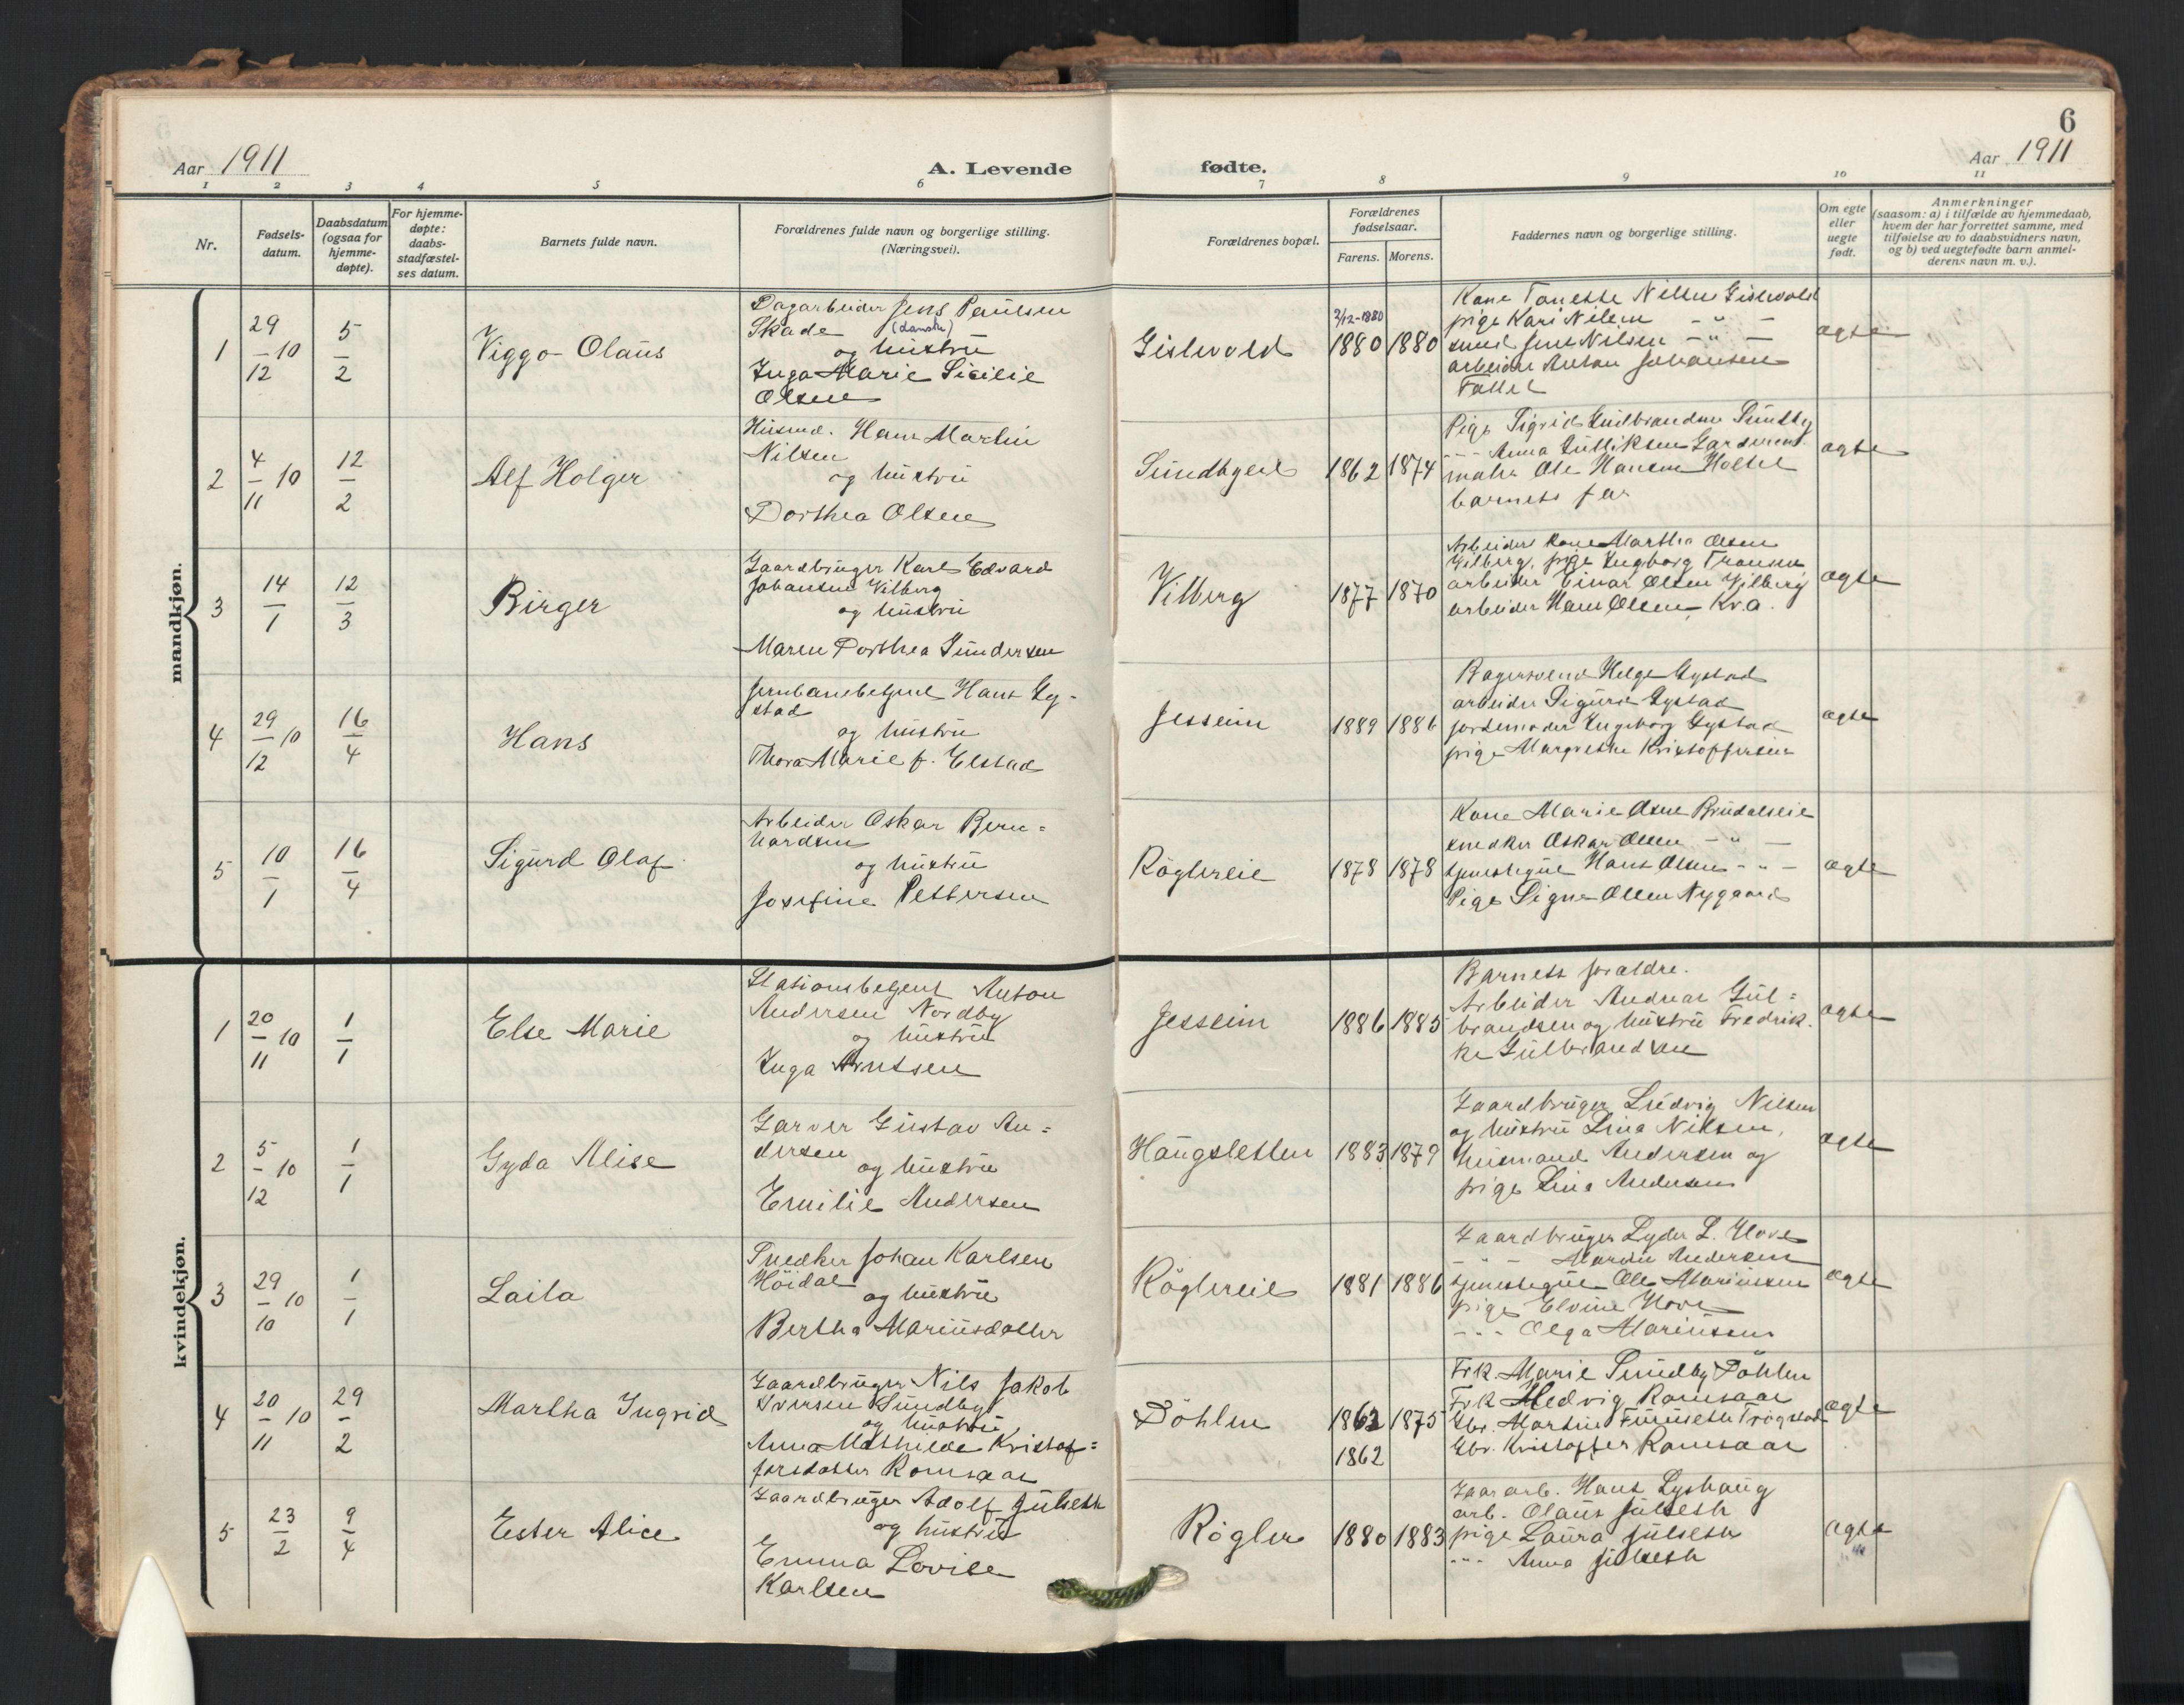 6
Aar 1911
A. Levende
fødte.
Aar 1911
1 2 3 4 5 6 7 8 9 10 11
Nr.
Fødsels-
datum.
Daabsdatum
(ogsaa for
hjemme-
døpte).
For hjemme-
døpte:
daabs-
stadfæstel-
ses datum.
Barnets fulde navn.
Forældrenes fulde navn og borgerlige stilling.
(Næringsvei).
Forældrenes bopæl.
Forældrenes
fødselsaar.
Farens. Morens.
Faddernes navn og borgerlige stilling.
Om egte
eller
uegte
født.
Anmerkninger
(saasom: a) i tilfælde av hjemmedaab,
hvem der har forrettet samme, med
tilføielse av to daabsvidners navn,
og b) ved uegtefødte barn anmel-
derens navn m. v.).
mandkjøn.
1
29/12 10
5/2
Viggo Olaus
Dagarbeider Jens Paulsen
Skade (dansk)
og hustru
Inga Marie Sicilie
Olsen
Gislevold
2/12-1880
1880 1880
Kone Tanette Nilsen Gislevold
pige Kari Nilsen - " -
smed Jens Nilsen - " -
arbeider Anton Johansen
egte
2
4/11 10
12/2
Alf Holger
Husmd. Hans Martin
Nilsen
og hustru
Dorthea Olsen
Sundbyeie
1862 1874
Pige Sigrid Gulbrandsen Sundby
- " - Anna Gulliksen
maler Ole Hansen Holtet
barnets far
egte
3
14/1
12/3
Birger
Gaardbruger Karl Edvard
Johansen Vilberg
og hustru
Maren Dorthea Gundersen
Vilberg
1877 1870
Arbeider kone Martha Olsen
Vilberg, pige Ingborg Fransen
arbeider Einar Olsen Vilberg
arbeider Hans Olsen
egte
4
29/12 10
16/4
Hans
Jernbanebetjent Hans Gy-
stad
og hustru
Thora Marie f. Elstad
Jessheim
1889 1886
Bagersvend Helge Gystad
arbeider Sigurd Gystad
jordemoder Ingeborg Gystad
pige Margrethe Kristoffersen
egte
5
10/1
16/4
Sigurd Olaf
Arbeider Oskar Bern=
hardsen
og hustru
Josefine Pettersen
Röglereie
1878 1878
Kone Marie Olsen Brudalseie
snedker Oskar Olsen - " -
tjenestegut Hans Olsen - " -
Pige Signe Olsen Nygaard
egte
kvindekjøn.
1
20/11 10
1/1
Else Marie
Stationsbetjent Anton
Andersen Nordby
og hustru
Inga Arntsen
Jessheim
1886 1885
Barnets foraldre.
Arbeider Andreas Gul=
brandsen og hustru Fredrik-
ke Gulbrandsen
egte
2
5/12 10
1/1
Gyda Alise
Garver Gustav An=
dersen
og hustru
Emilie Andersen
Haugsletten
1883 1879
Gaardbruger Ludvig Nilsen
og hustru Lina Nilsen,
husmand Andersen og
pige Lina Andersen
egte
3
29/10 10
1/1
Laila
Snedker Johan Karlsen
Höidal
og hustru
Bertha Mariusdatter
Röglereie
1881 1886
Gaardbruger Lyder L. Hove
- " - Martin Andersen
tjenestegut Ole Mariussen
pige Elvine Hove
- " - Olga Mariussen
egte
4
20/11 10
29/2
Martha Ingrid
Gaardbruger Nils Jakob
Iversen Sundby
og hustru
Anna Mathilde Kristof=
fersdatter Romsaas
Döhlen
1862 1875
1862
Frk. Marie Sundby Döhlen
Frk Hedvig Romsaas
Gbr. Martin Furuseth Trögstad
Gbr. Kristoffer Romsaas
egte
5
23/2
9/4
Ester Alice
Gaardbruger Adolf Julseth
og hustru
Emma Lovise
Karlsen
Rögler
1880 1883
Gaardarb. Hans Lyshaug
arb. Olaus Julseth
pige Laura Julseth
- " - Anna Julseth
egte